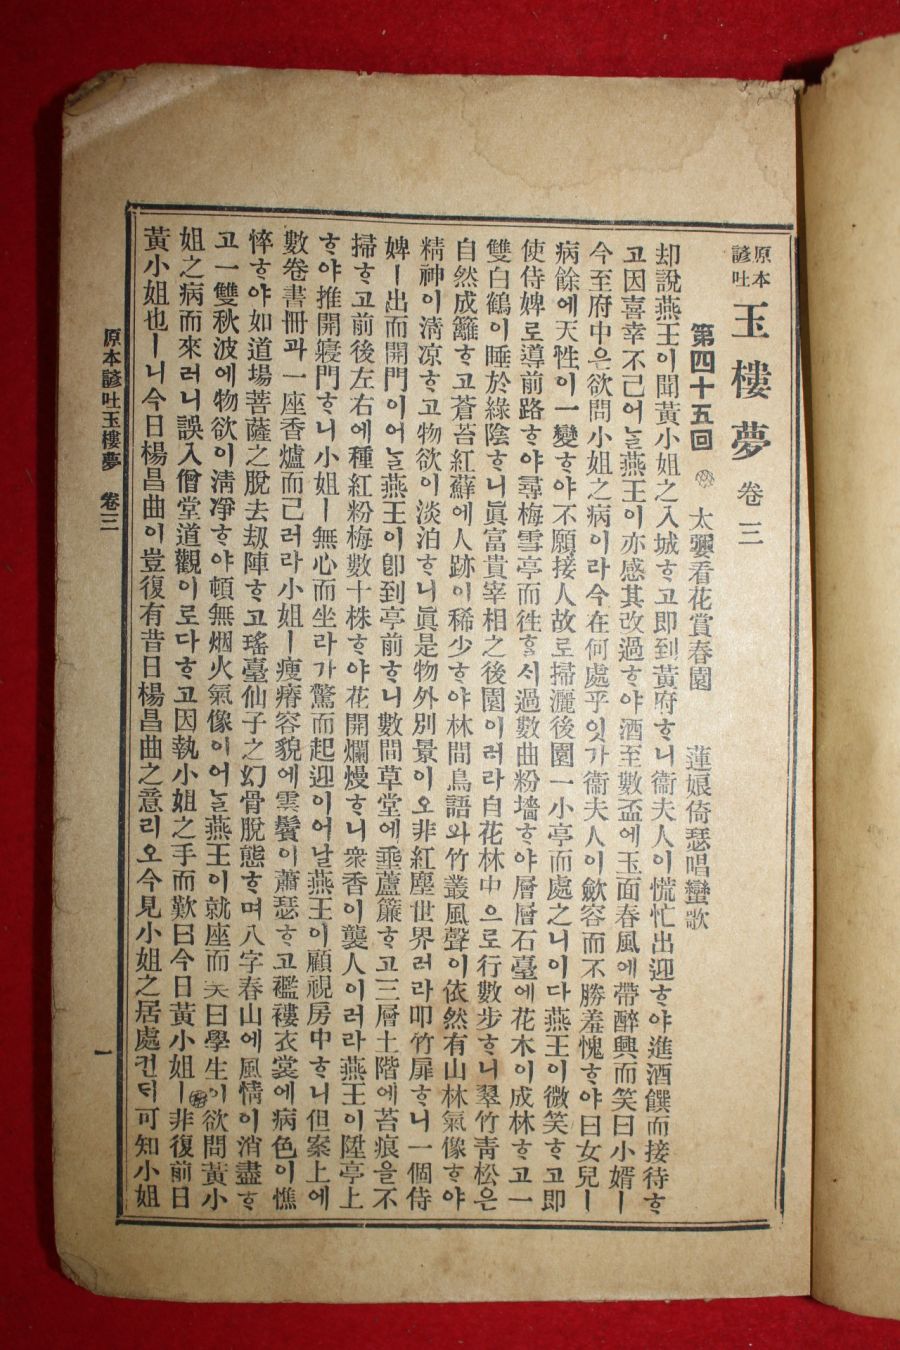 原本諺吐 玉樓夢 卷三
第四十五回 太㜲看花賞春園 蓮娘倚瑟唱蠻歌
却說燕王이聞黃小姐之入城ᄒᆞ고即到黃府ᄒᆞ니衞夫人이慌忙出迎ᄒᆞ야進酒饌而接待ᄒᆞ
고因喜幸不已어ᄂᆞᆯ燕王이亦感其改過ᄒᆞ야酒至數盃에玉面春風에帶醉興而笑曰小婿ㅣ
今至府中은欲問小姐之病이라今在何處乎잇가衞夫人이歛容而不勝羞愧ᄒᆞ야曰女兒ㅣ
病餘에天性이一變ᄒᆞ야不願接人故로掃灑後園一小亭而處之니이다燕王이微笑ᄒᆞ고即
使侍婢로導前路ᄒᆞ야尋梅雪亭而徃ᄒᆞᆯᄉᆡ過數曲粉墻ᄒᆞ야層層石臺에花木이成林ᄒᆞ고一
雙白鶴이睡於綠陰ᄒᆞ니眞富貴宰相之後園이러라自花林中으로行數步ᄒᆞ니翠竹靑松은
自然成籬ᄒᆞ고蒼苔紅蘇에人跡이稀少ᄒᆞ야林間鳥語와竹叢風聲이依然有山林氣像ᄒᆞ야
精神이淸凉ᄒᆞ고物欲이淡泊ᄒᆞ니眞是物外別景이오非紅塵世界러라叩竹扉ᄒᆞ니一個侍
婢ㅣ出而開門이어ᄂᆞᆯ燕王이卽到亭前ᄒᆞ니數間草堂에垂蘆簾ᄒᆞ고三層土階에苔痕을不
掃ᄒᆞ고前後左右에種紅粉梅數十株ᄒᆞ야花開爛熳ᄒᆞ니衆香이襲人이러라燕王이陞亭上
ᄒᆞ야推開寢門ᄒᆞ니小姐ㅣ無心而坐라가驚而起迎이어날燕王이顧視房中ᄒᆞ니但案上에
數卷書冊과一座香爐而已러라小姐ㅣ瘦瘠容貌에雲鬢이蕭瑟ᄒᆞ고襤褸衣裳에病色이憔
悴ᄒᆞ야如道場菩薩之脫去刼陣ᄒᆞ고瑤臺仙子之幻骨脫態ᄒᆞ며八字春山에風情이消盡ᄒᆞ
고一雙秋波에物欲이淸淨ᄒᆞ야頓無烟火氣像이어ᄂᆞᆯ燕王이就座而笑曰學生이欲問黃小
姐之病而來러니誤入僧堂道觀이로다ᄒᆞ고因執小姐之手而歎曰今日黃小姐ㅣ非復前日
黃小姐也ㅣ니今日楊昌曲이豈復有昔日楊昌曲之意리오今見小姐之居處컨ᄃᆡ可知小姐
原本諺吐玉樓夢 卷三
一